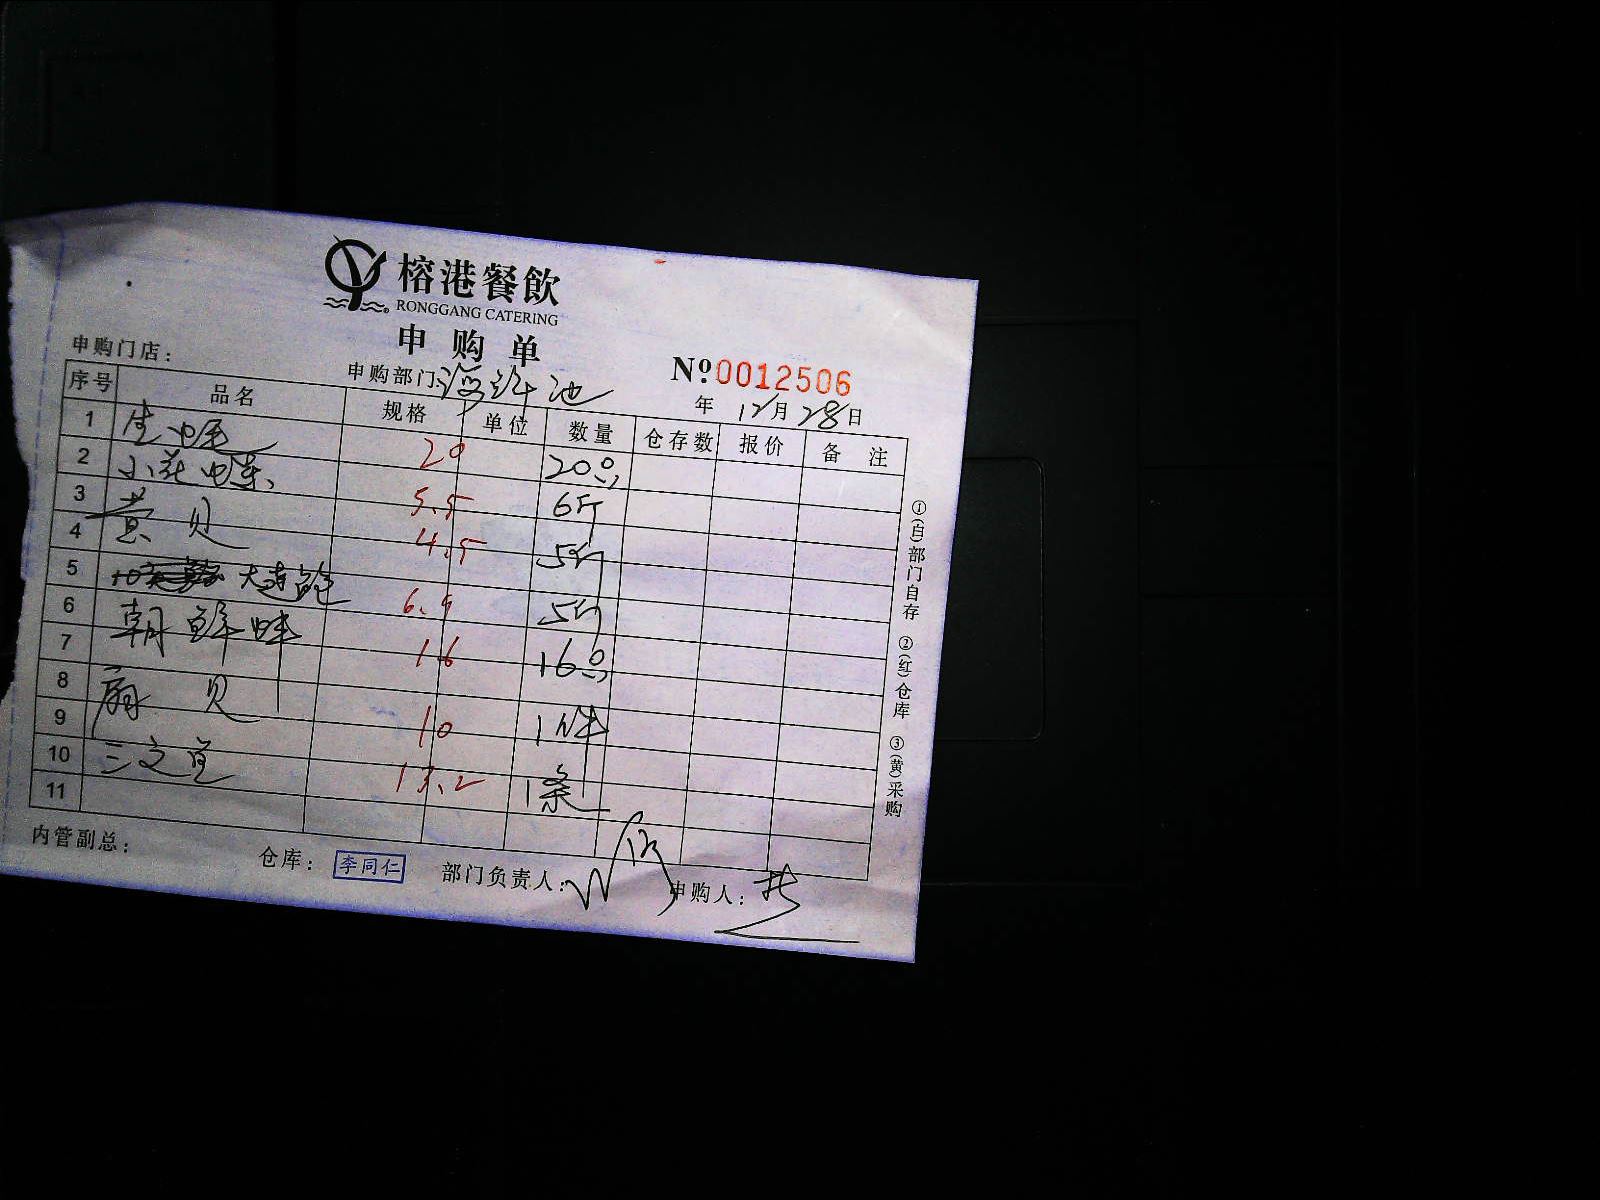 榕港餐飲
RONGGANG CATERING
申购单
申购门店：
申购部门：海鲜池
№ 0012506
年 12月28日
序号 品名 规格 单位 数量 仓存数 报价 备注
1 生蚝 20 20只
2 小花螺 5.5 6斤
3 黄贝 4.5 5斤
4
5 大连鲍 6.5 5斤
6 朝鲜蚌 16 16只
7
8 扇贝 10 1件
9
10 三文鱼 13.2 1条
11
①(白)部门自存 ②(红)仓库 ③(黄)采购
内管副总：
仓库：李同仁
部门负责人：
申购人：